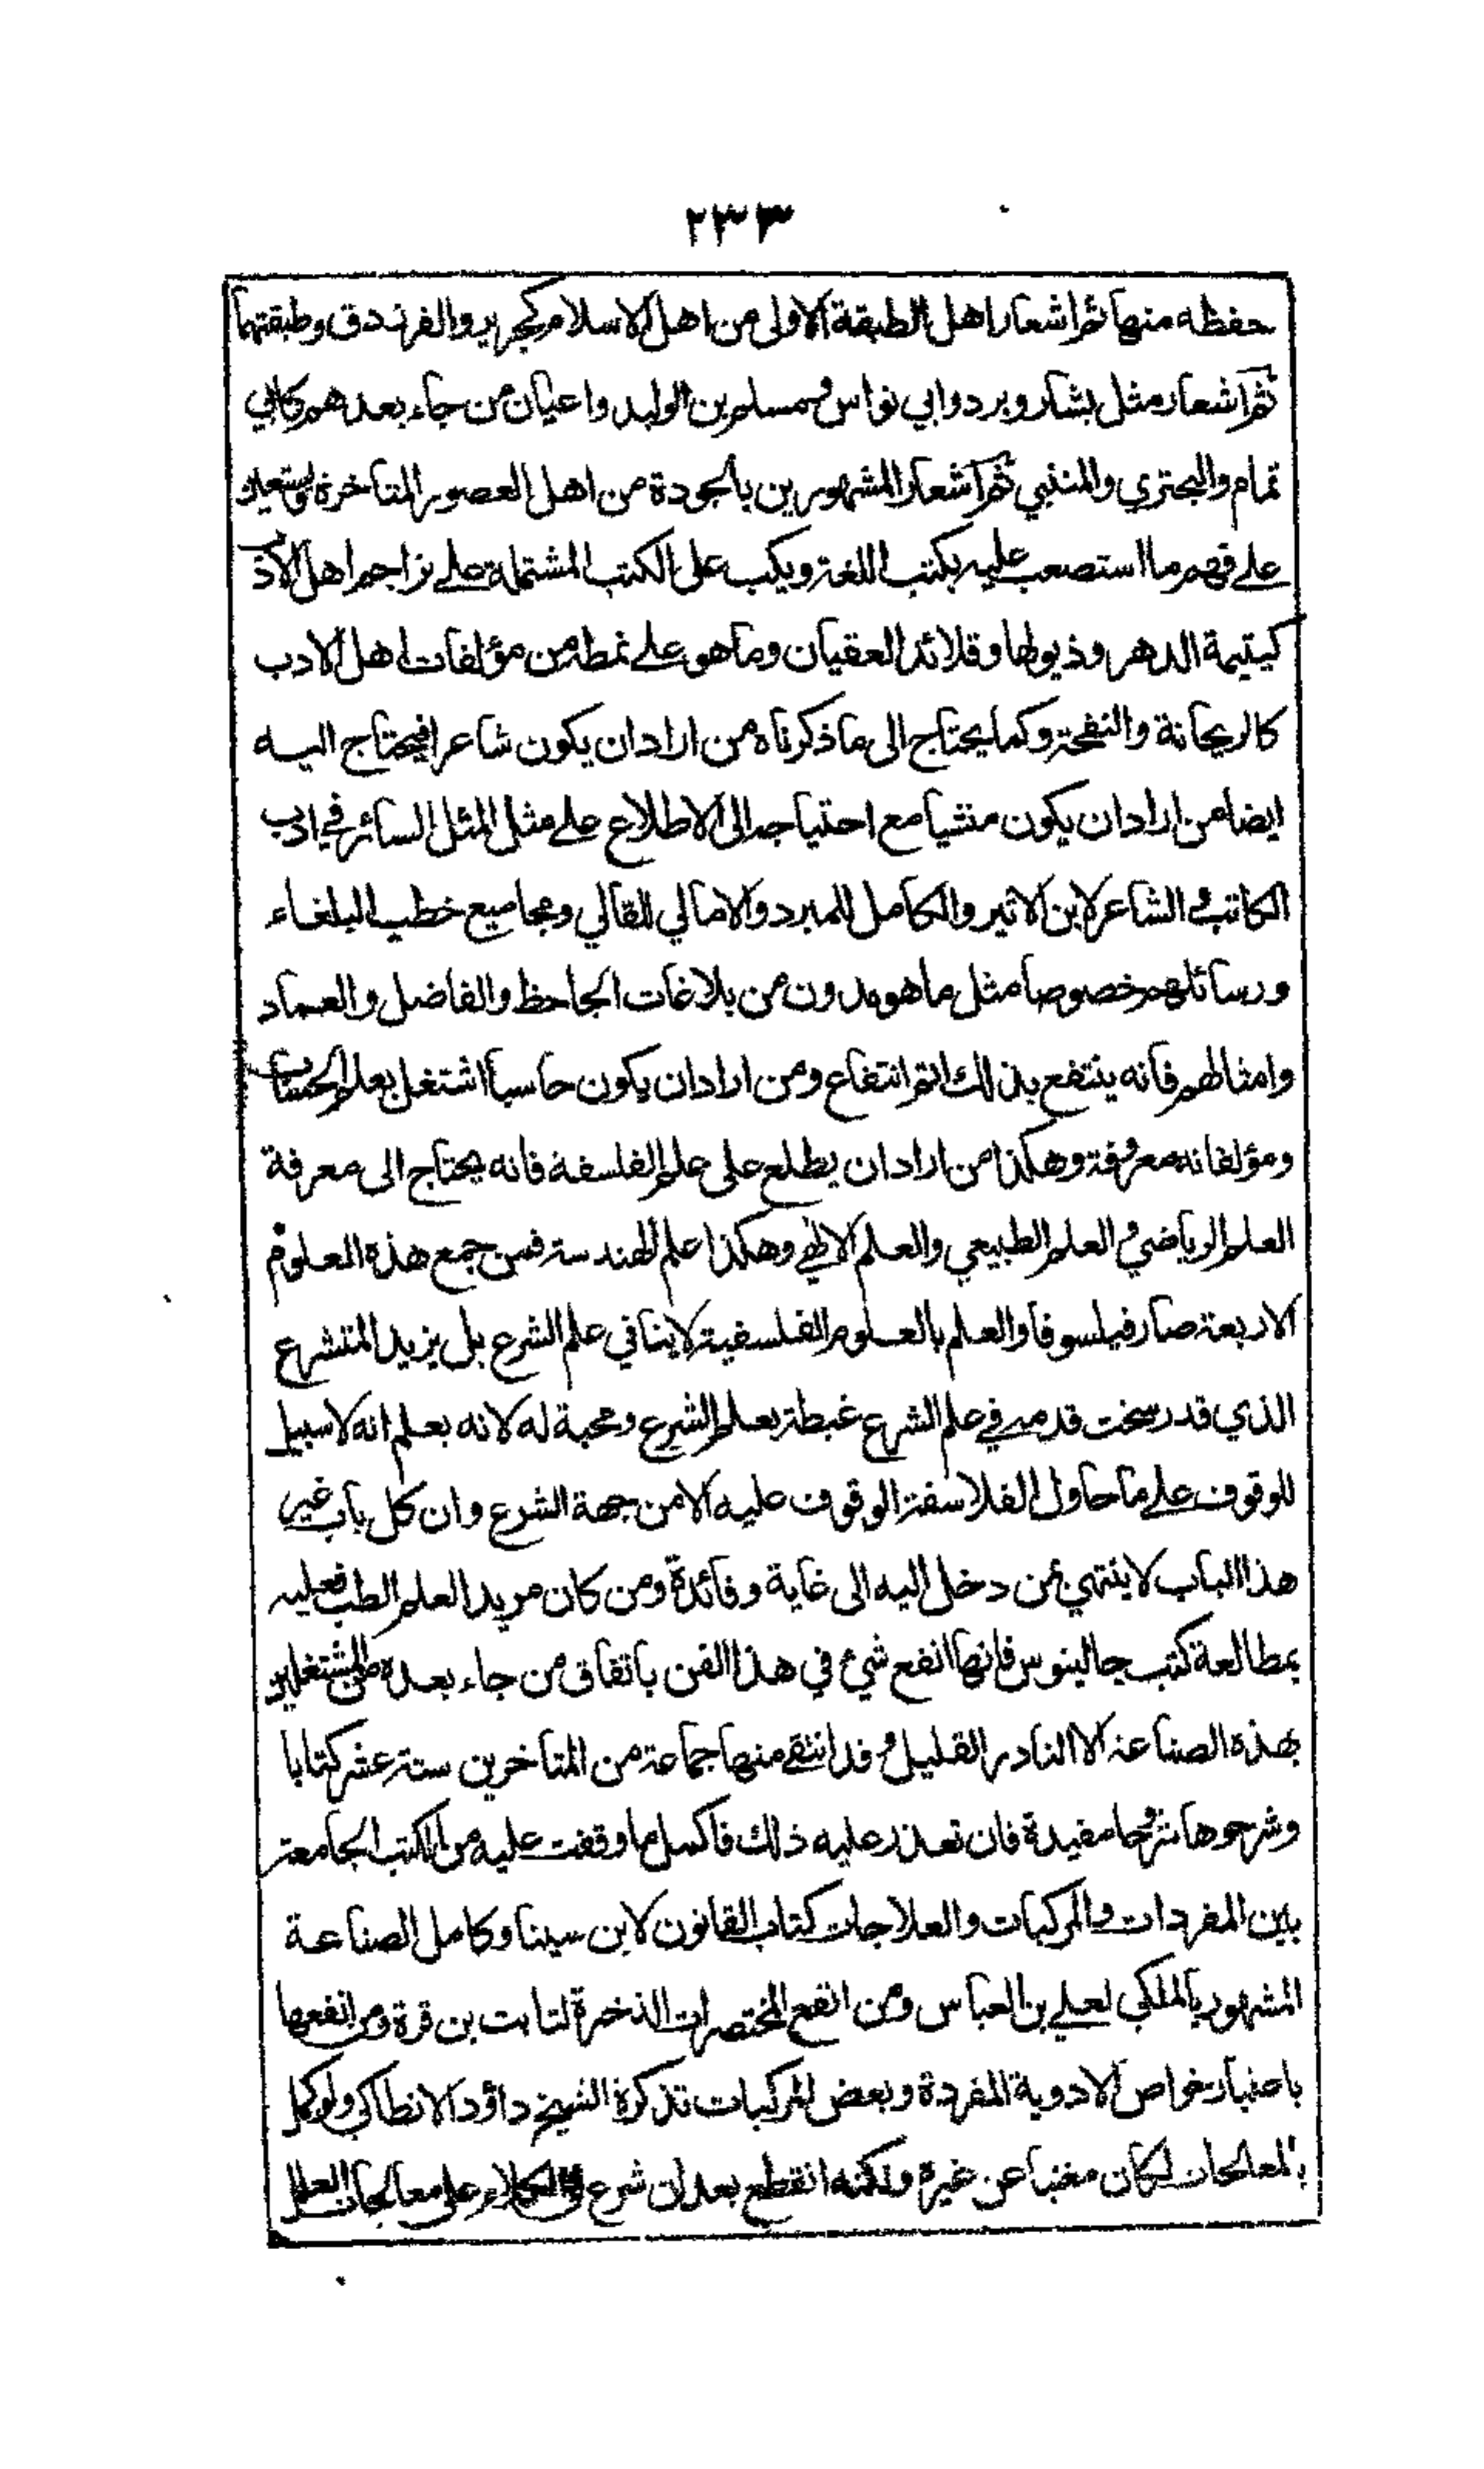 ٢٣٣
حفظه منها ثم اشعار اهل الطبقة الاولى من اهل الاسلام كجرير والفرزدق وطبقتهما
ثم اشعار مثل بشار وبرد وابي نواس ومسلم بن الوليد واعيان من جاء بعدهم كابي
تمام والبحتري والمتنبي ثم اشعار المشهورين بالجودة من اهل العصور المتأخرة ويستعين
على فهم ما استصعب عليه بكتب اللغة ويكب على الكتب المشتملة على تراجم اهل الادب
كيتيمة الدهر وذيولها وقلائد العقيان وما هو على نمطه من مؤلفات اهل الادب
كالريحانة والنفحة وكما يحتاج الى ما ذكرناه من اراد ان يكون شاعرا فيحتاج اليه
ايضا من اراد ان يكون منشيا مع احتياجه الى الاطلاع على مثل المثل السائر في ادب
الكاتب والشاعر لابن الاثير والكامل للمبرد والامالي للقالي ومجاميع خطب البلغاء
ورسائلهم خصوصا مثل ما هو مدون من بلاغات الجاحظ والفاضل والعماد
وامثالهم فانه ينتفع بذلك اتم انتفاع ومن اراد ان يكون حاسبا اشتغل بعلم الحساب
ومؤلفاته معروفة وهكذا من اراد ان يطلع على علم الفلسفة فانه يحتاج الى معرفة
العلم الرياضي والعلم الطبيعي والعلم الالهي وهكذا علم الهندسة فمن جمع هذه العلوم
الاربعة صار فيلسوفا والعلم بالعلوم الفلسفية لا ينافي علم الشرع بل يزيد المتشرع
الذي قد رسخت قدمه في علم الشرع غبطة بعلم الشرع ومحبة له لانه يعلم انه لا سبيل
للوقوف على ما حاول الفلاسفة الوقوف عليه الا من جهة الشرع وان كل باب غير
هذا الباب لا ينتهي بمن دخل اليه الى غاية وفائدة ومن كان مريدا لعلم الطب فعليه
بمطالعة كتب جالينوس فانها انفع شئ في هذا الفن باتفاق من جاء بعده من المشتغلين
بهذه الصناعة الا النادر القليل وقد انتقى منها جماعة من المتأخرين ستة عشر كتابا
وشرحوها شروحا مفيدة فان تعذر عليه ذلك فاكمل ما وقفت عليه من الكتب الجامعة
بين المفردات والمركبات والعلاجات كتاب القانون لابن سينا وكامل الصناعة
المشهور بالملكي لعلي بن العباس ومن انفع المختصرات الذخيرة لثابت بن قرة ومن انفعها
باعتبار خواص الادوية المفردة وبعض المركبات تذكرة الشيخ داؤد الانطاكي ولو كمل
بالمعالجات لكان مغنيا عن غيره ولكنه انقطع بعد ان شرع في الكلام على معالجات العلل